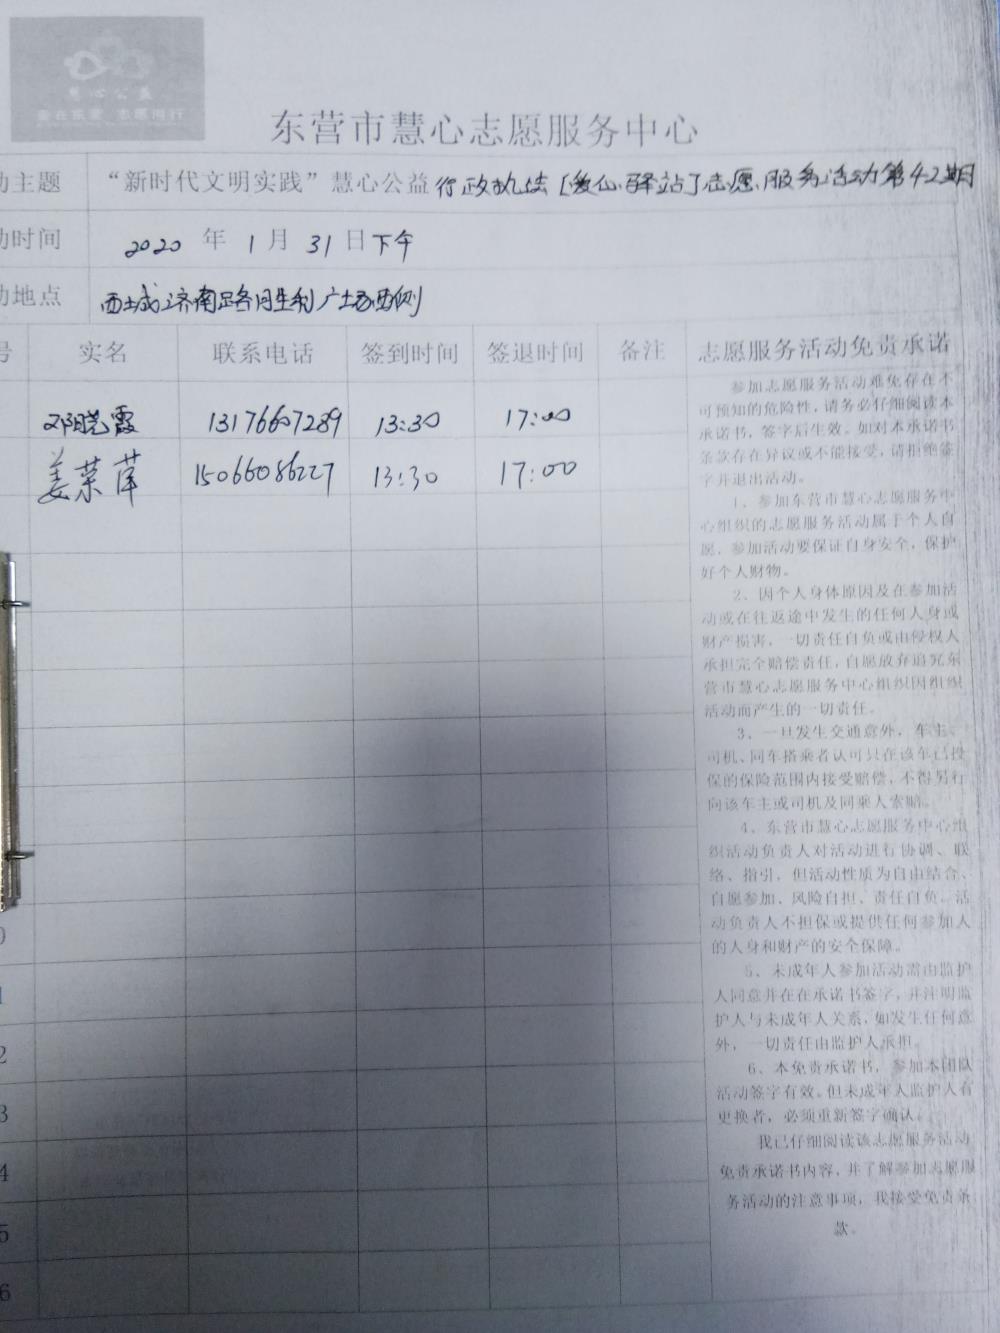 慧心公益
爱在东营 志愿同行
东营市慧心志愿服务中心
动主题 “新时代文明实践”慧心公益行政执法[爱心驿站]志愿服务活动第42期
动时间 2020 年 1 月 31 日下午
动地点 西城济南路同生利广场西侧
号 实名 联系电话 签到时间 签退时间 备注 志愿服务活动免责承诺
邓晓霞 13176607289 13:30 17:00
姜荣萍 15066086227 13:30 17:00
参加志愿服务活动难免存在不
可预知的危险性,请务必仔细阅读本
承诺书,签字后生效。如对本承诺书
条款存在异议或不能接受,请拒绝签
字并退出活动。
1、参加东营市慧心志愿服务中
心组织的志愿服务活动属于个人自
愿,参加活动要保证自身安全,保护
好个人财物。
2、因个人身体原因及在参加活
动或在往返途中发生的任何人身或
财产损害,一切责任自负或由侵权人
承担完全赔偿责任,自愿放弃追究东
营市慧心志愿服务中心组织因组织
活动而产生的一切责任。
3、一旦发生交通意外,车主、
司机、同车搭乘者认可只在该车已投
保的保险范围内接受赔偿,不得另行
向该车主或司机及同乘人索赔。
4、东营市慧心志愿服务中心组
织活动负责人对活动进行协调、联
络、指引,但活动性质为自由结合、
自愿参加、风险自担、责任自负。活
动负责人不担保或提供任何参加人
的人身和财产的安全保障。
5、未成年人参加活动需由监护
人同意并在在承诺书签字,并注明监
护人与未成年人关系,如发生任何意
外,一切责任由监护人承担。
6、本免责承诺书,参加本团队
活动签字有效。但未成年人监护人有
更换者,必须重新签字确认。
我已仔细阅读该志愿服务活动
免责承诺书内容,并了解参加志愿服
务活动的注意事项,我接受免责条
款。
0
1
2
3
4
5
6